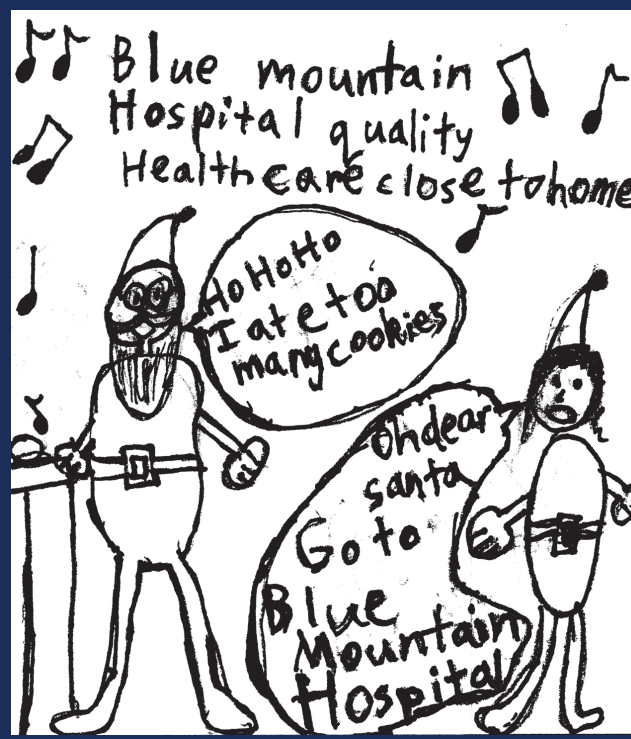 Blue mountain
Hospital quality
Healthcare close to home
Ho Ho Ho
I ate too
many cookies
Oh dear
santa
Go to
Blue
Mountain
Hospital